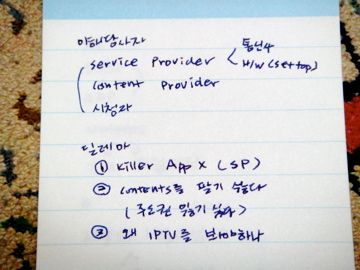 이해당사자
service Provider < 통신사
H/W (settop)
content Provider
시청자
딜레마
① Killer App X (SP)
② contents를 팔기 싫다
(주도권 잃기 싫다)
③ 왜 IPTV를 보아야하나